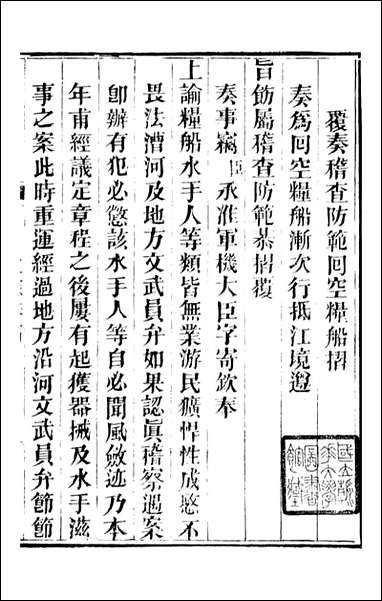 覆奏稽查防範回空糧船摺
奏為回空糧船漸次行抵江境遵
旨飭屬稽查防範恭摺覆
奏事竊臣承准軍機大臣字寄欽奉
上諭糧船水手人等類皆無業游民獷悍性成愍不
畏法漕河及地方文武員弁如果認眞稽察遇案
卽辦有犯必懲該水手人等自必聞風斂迹乃本
年甫經議定章程之後屢有起獲器械及水手滋
事之案此時重運經過地方沿河文武員弁節節